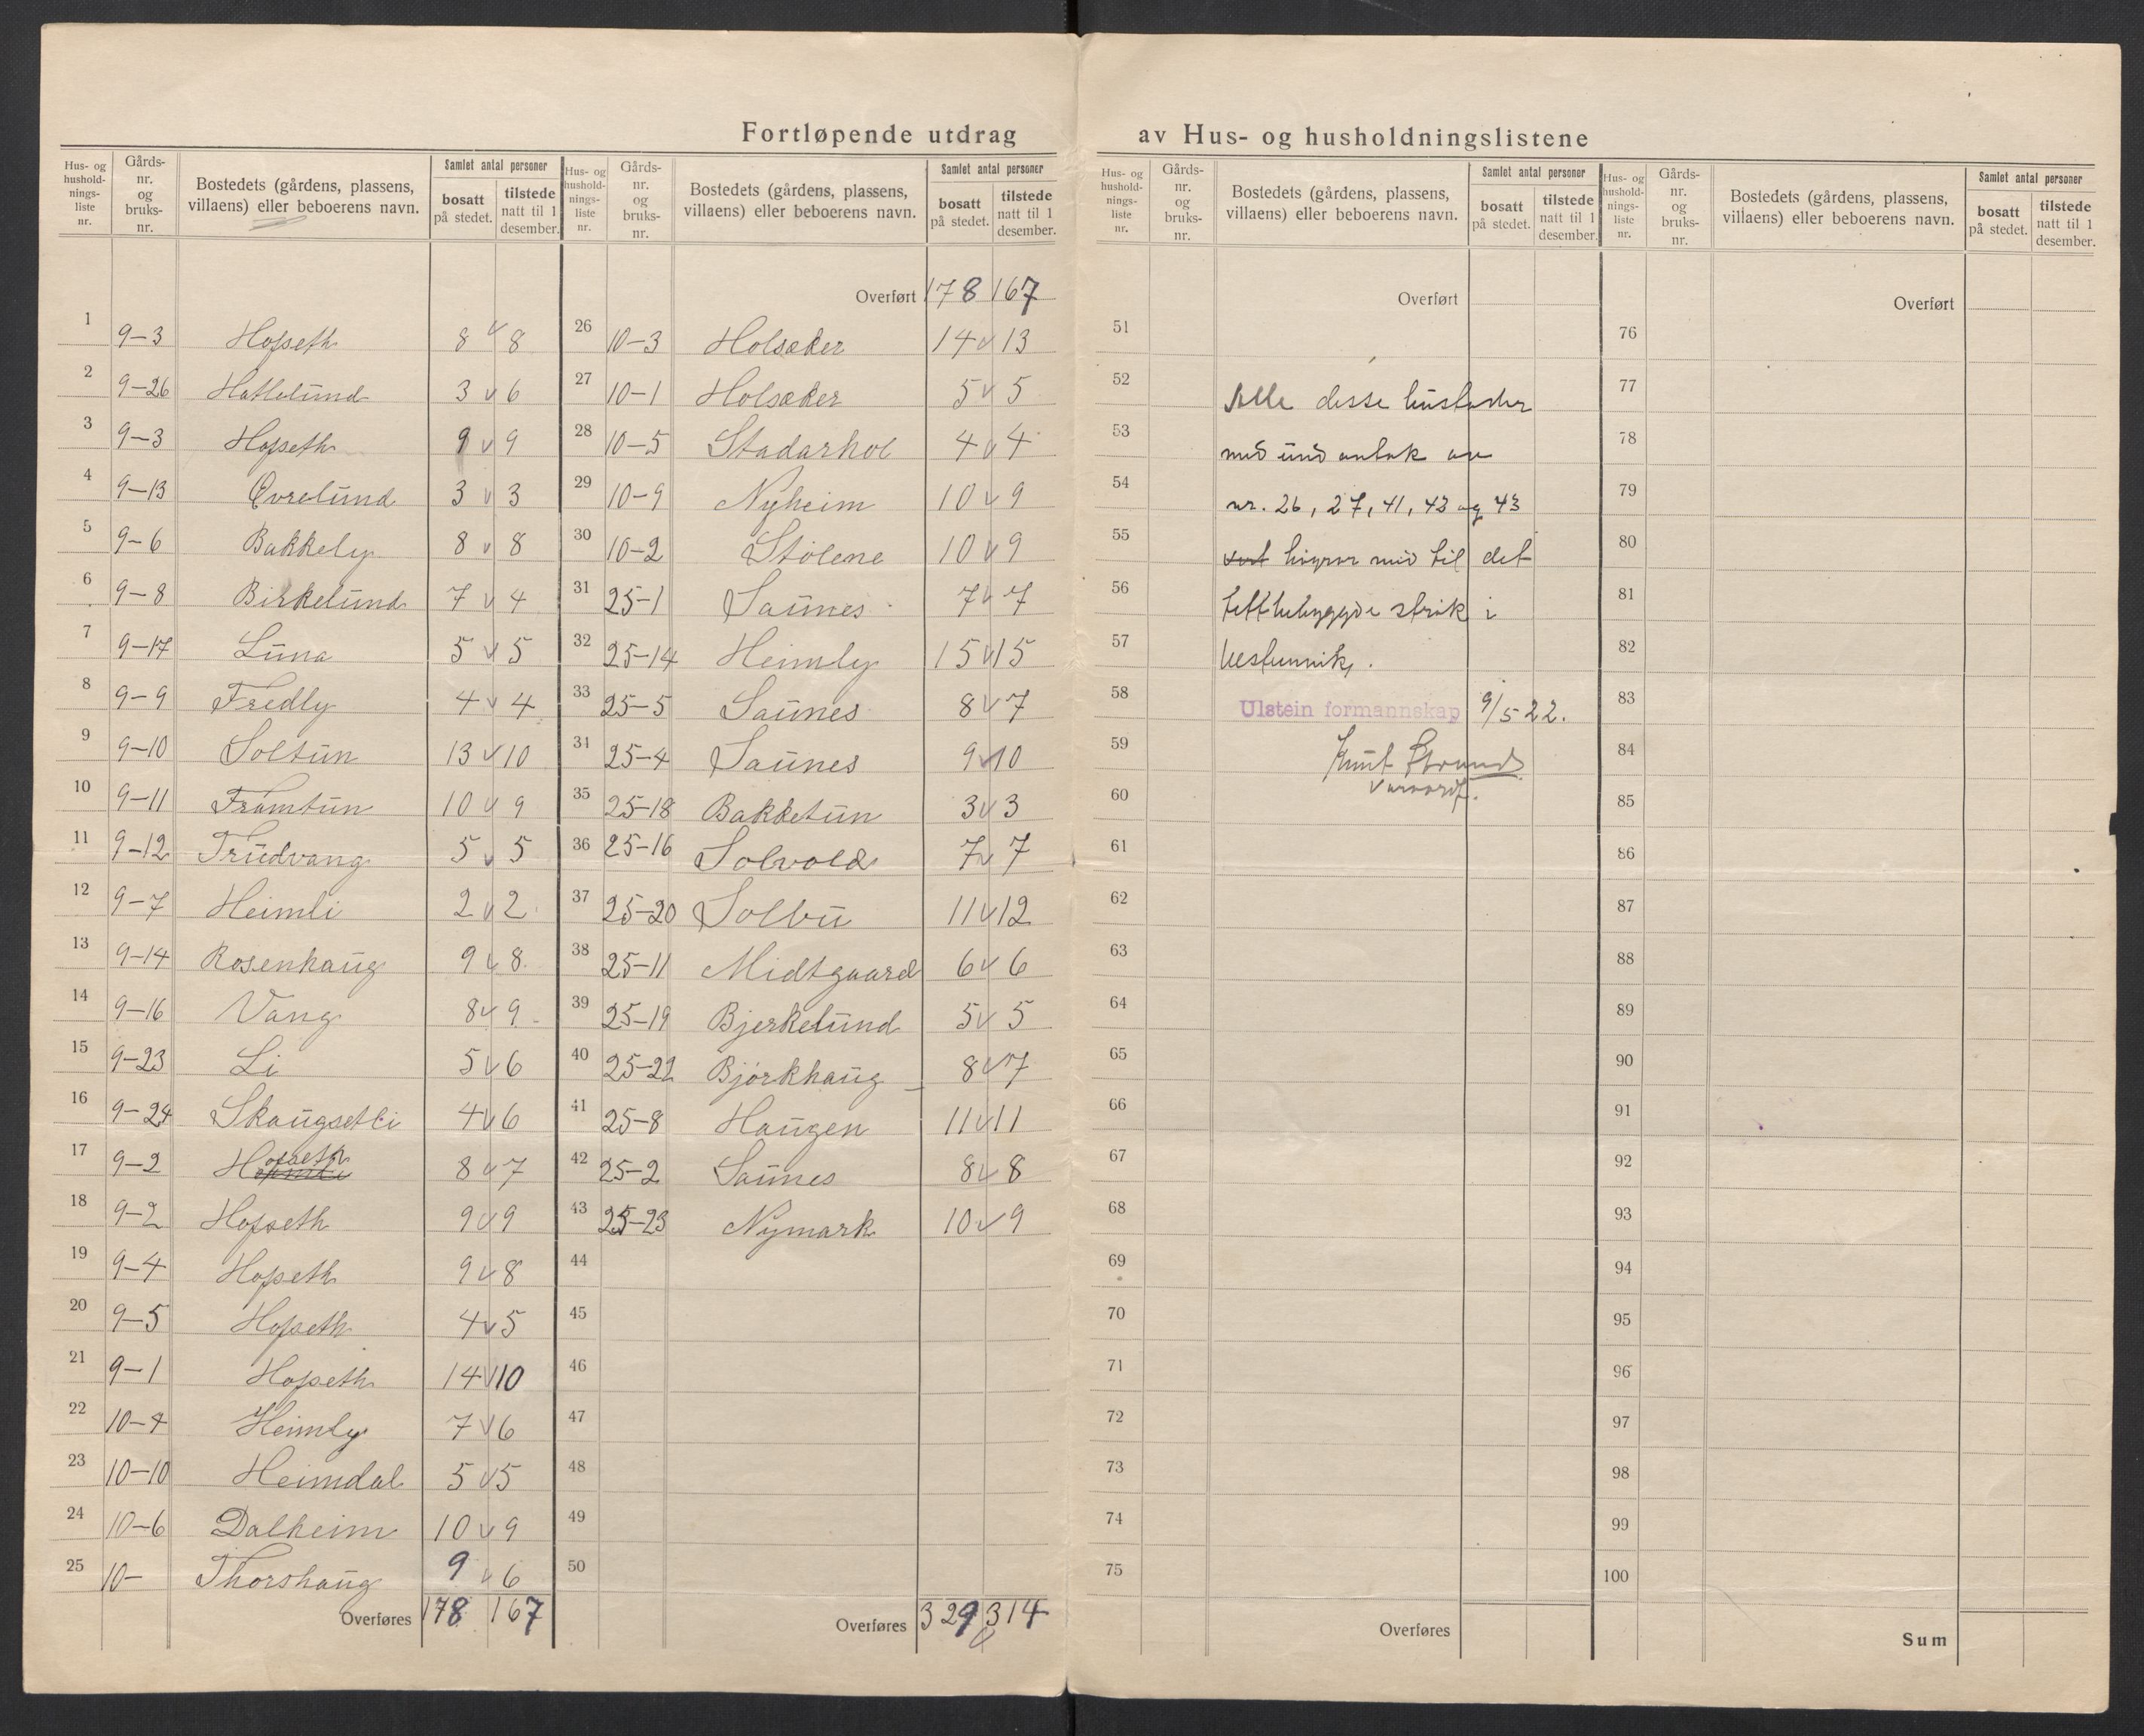 Fortløpende utdrag av Hus- og husholdningslistene
Hus- og hushold-nings-liste nr. Gårds-nr. og bruks-nr. Bostedets (gårdens, plassens, villaens) eller beboerens navn. Samlet antal personer bosatt på stedet. tilstede natt til 1 desember.
1 9-3 Hofseth 8 v 8
2 9-26 Hatlelund 3 v 6
3 9-3 Hofseth 9 v 9
4 9-13 Øvrelund 3 v 3
5 9-6 Bakkely 8 v 8
6 9-8 Birkelund 7 v 4
7 9-17 Luna 5 v 5
8 9-9 Fredly 4 v 4
9 9-10 Soltun 13 v 10
10 9-11 Framtun 10 v 9
11 9-12 Trudvang 5 v 5
12 9-7 Heimli 2 v 2
13 9-14 Rosenhaug 9 v 8
14 9-16 Vang 8 v 9
15 9-23 Li 5 v 6
16 9-24 Skaugsetli 4 v 6
17 9-2 Hofseth 8 v 7
18 9-2 Hofseth 9 v 9
19 9-4 Hofseth 9 v 8
20 9-5 Hofseth 4 v 5
21 9-1 Hofseth 14 v 10
22 10-4 Heimly 7 v 6
23 10-10 Heimdal 5 v 5
24 10-6 Dalheim 10 v 9
25 10- Thorshaug 9 v 6
Overføres 178 167
Hus- og hushold-nings-liste nr. Gårds-nr. og bruks-nr. Bostedets (gårdens, plassens, villaens) eller beboerens navn. Samlet antal personer bosatt på stedet. tilstede natt til 1 desember.
Overført 178 167
26 10-3 Holsæker 14 v 13
27 10-1 Holsæker 5 v 5
28 10-5 Stadarhol 4 v 4
29 10-9 Nyheim 10 v 9
30 10-2 Stølene 10 v 9
31 25-1 Saunes 7 v 7
32 25-14 Heimly 15 v 15
33 25-5 Saunes 8 v 7
34 25-4 Saunes 9 v 10
35 25-18 Bakketun 3 v 3
36 25-16 Solvold 7 v 7
37 25-20 Solbu 11 v 12
38 25-11 Midtgaard 6 v 6
39 25-19 Bjerkelund 5 v 5
40 25-22 Bjørkhaug 8 v 7
41 25-8 Haugen 11 v 11
42 25-2 Saunes 8 v 8
43 25-23 Nymark 10 v 9
44
45
46
47
48
49
50
Overføres 329 314
Hus- og hushold-nings-liste nr. Gårds-nr. og bruks-nr. Bostedets (gårdens, plassens, villaens) eller beboerens navn. Samlet antal personer bosatt på stedet. tilstede natt til 1 desember.
Overført
51
52 Alle desse huslister
53 med und antak av
54 nr. 26, 27, 41, 42 og 43
55 høyrer med til det
56 tettbebyggde strøk i
57 Ulsteinvik.
58 Ulstein formannskap 9/5 22.
59 Knut Strand
60 varaordf.
61
62
63
64
65
66
67
68
69
70
71
72
73
74
75
Overføres
Hus- og hushold-nings-liste nr. Gårds-nr. og bruks-nr. Bostedets (gårdens, plassens, villaens) eller beboerens navn. Samlet antal personer bosatt på stedet. tilstede natt til 1 desember.
Overført
76
77
78
79
80
81
82
83
84
85
86
87
88
89
90
91
92
93
94
95
96
97
98
99
100
Sum